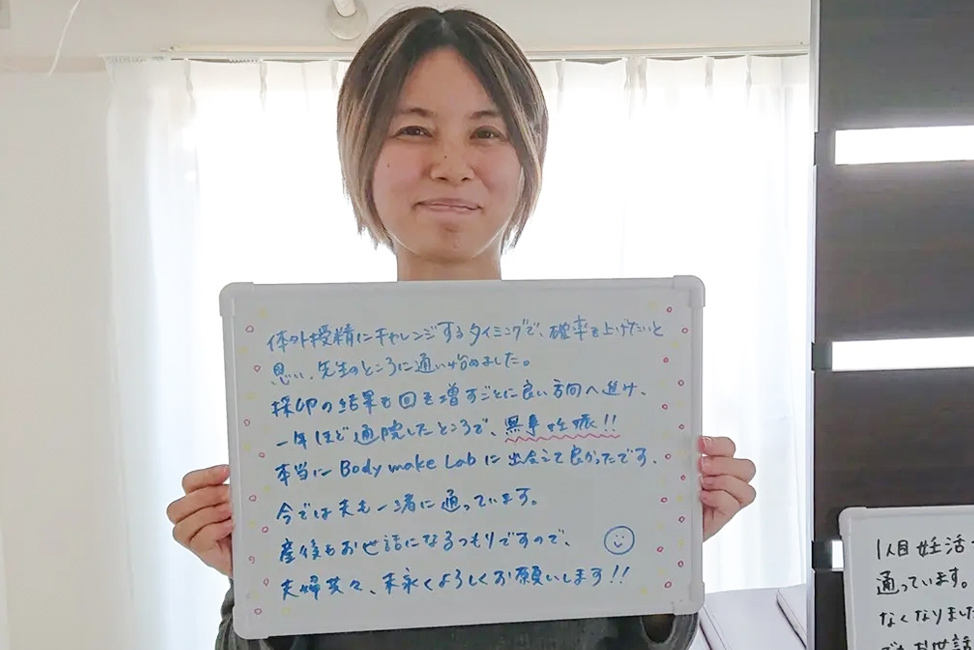 体外授精にチャレンジするタイミングで、確率を上げたいと
思い、先生のところに通い始めました。
採卵の結果も回を増すごとに良い方向へ進み、
一年ほど通院したところで、無事妊娠!!
本当に Body make Lab に出会えて良かったです、
今では夫も一緒に通っています。
産後もお世話になるつもりですので、
夫婦共々、末永くよろしくお願いします!!
1人目妊活
通っています。
なくなりまし
お世話